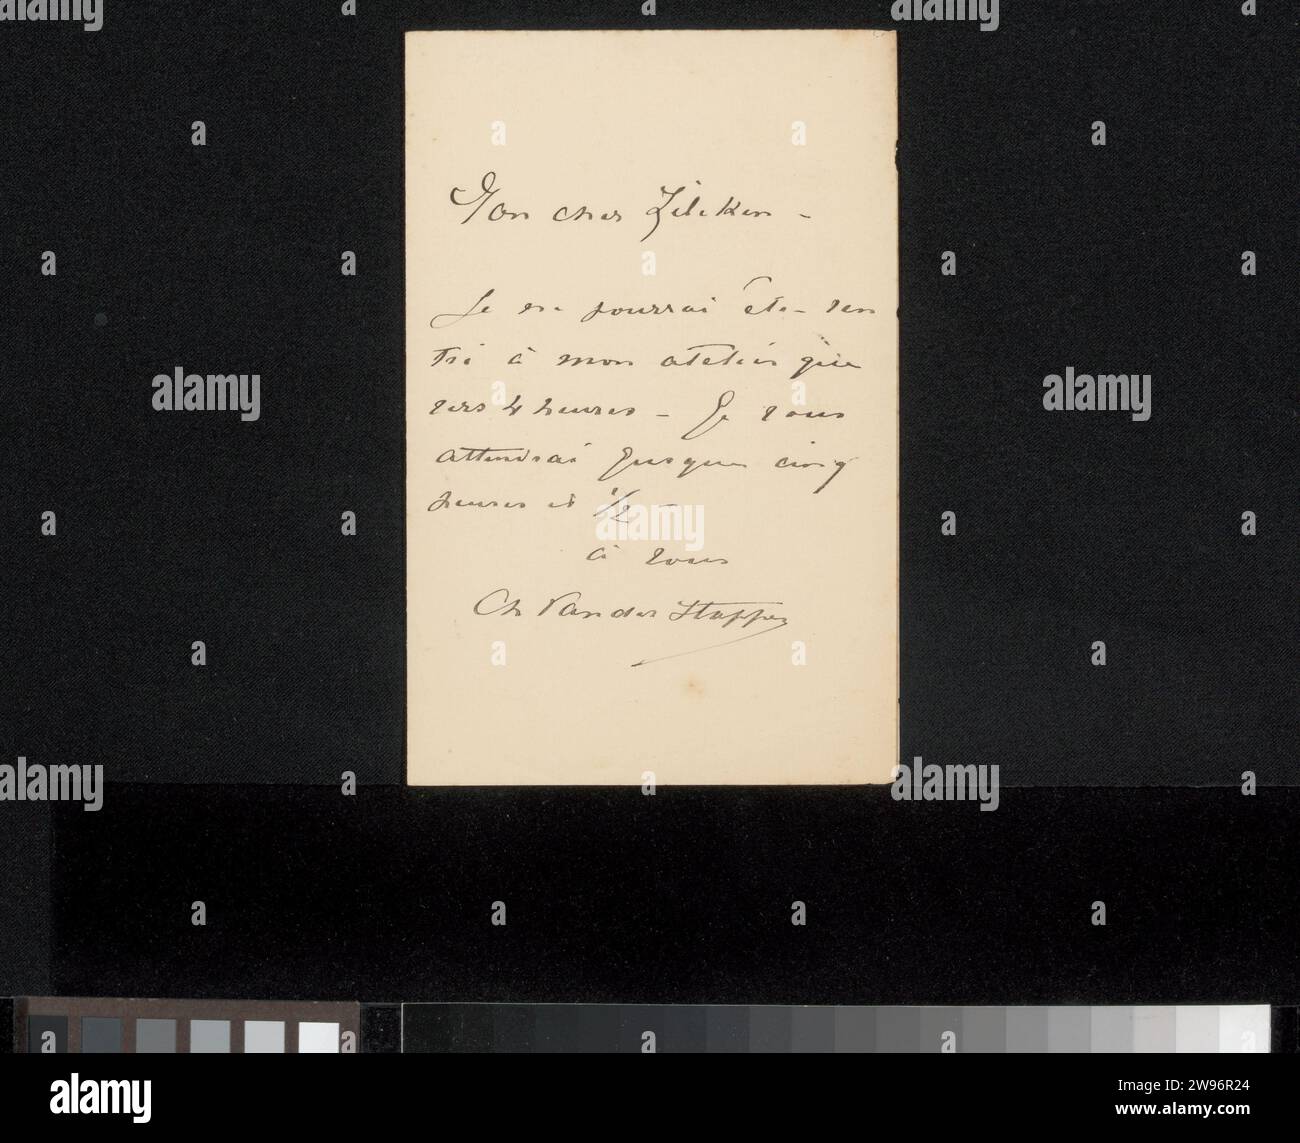 Mon cher Zilcken -
Je ne pourrai être ren
tré à mon atelier que
vers 4 heures - Je vous
attendrai jusque cinq
heures et 1/2 -
à vous
Ch Van der Stappen
alamy
Image ID: 2W96R24
www.alamy.com